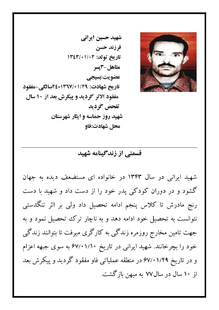 شهید حسین ایرانی
فرزند حسن
تاریخ تولد: ۱۳۴۳/۰۱/۰۲
متاهل-۳پسر
عضویت:بسیجی
تاریخ شهادت: ۱۳۶۷/۰۱/۲۹-۲۴سالگی-مفقود
مفقود الاثر گردید و پیکرش بعد از ۱۰ سال
تفحص گردید
شهید روز حماسه و ایثار شهرستان
محل شهادت:فاو
قسمتی از زندگینامه شهید
شهید ایرانی در سال ۱۳۴۳ در خانواده ای مستضعف دیده به جهان
گشود و در دوران کودکی پدر خود را از دست داد و شهید با دست
رنج مادرش تا کلاس پنجم ادامه تحصیل داد ولی بر اثر تنگدستی
نتوانست به تحصیل خود ادامه دهد و به ناچار ترک تحصیل نمود و به
جهت تامین مخارج روزمره زندگی به کارگری میرفت تا بتوانند زندگی
خود را بچرخانند. شهید ایرانی در تاریخ ۶۷/۰۱/۱۰ به سوی جبهه اعزام
و در تاریخ ۶۷/۰۱/۲۹ در منطقه عملیاتی فاو مفقود گردید و پیکرش بعد
از ۱۰ سال در سال۷۷ به میهن بازگشت.